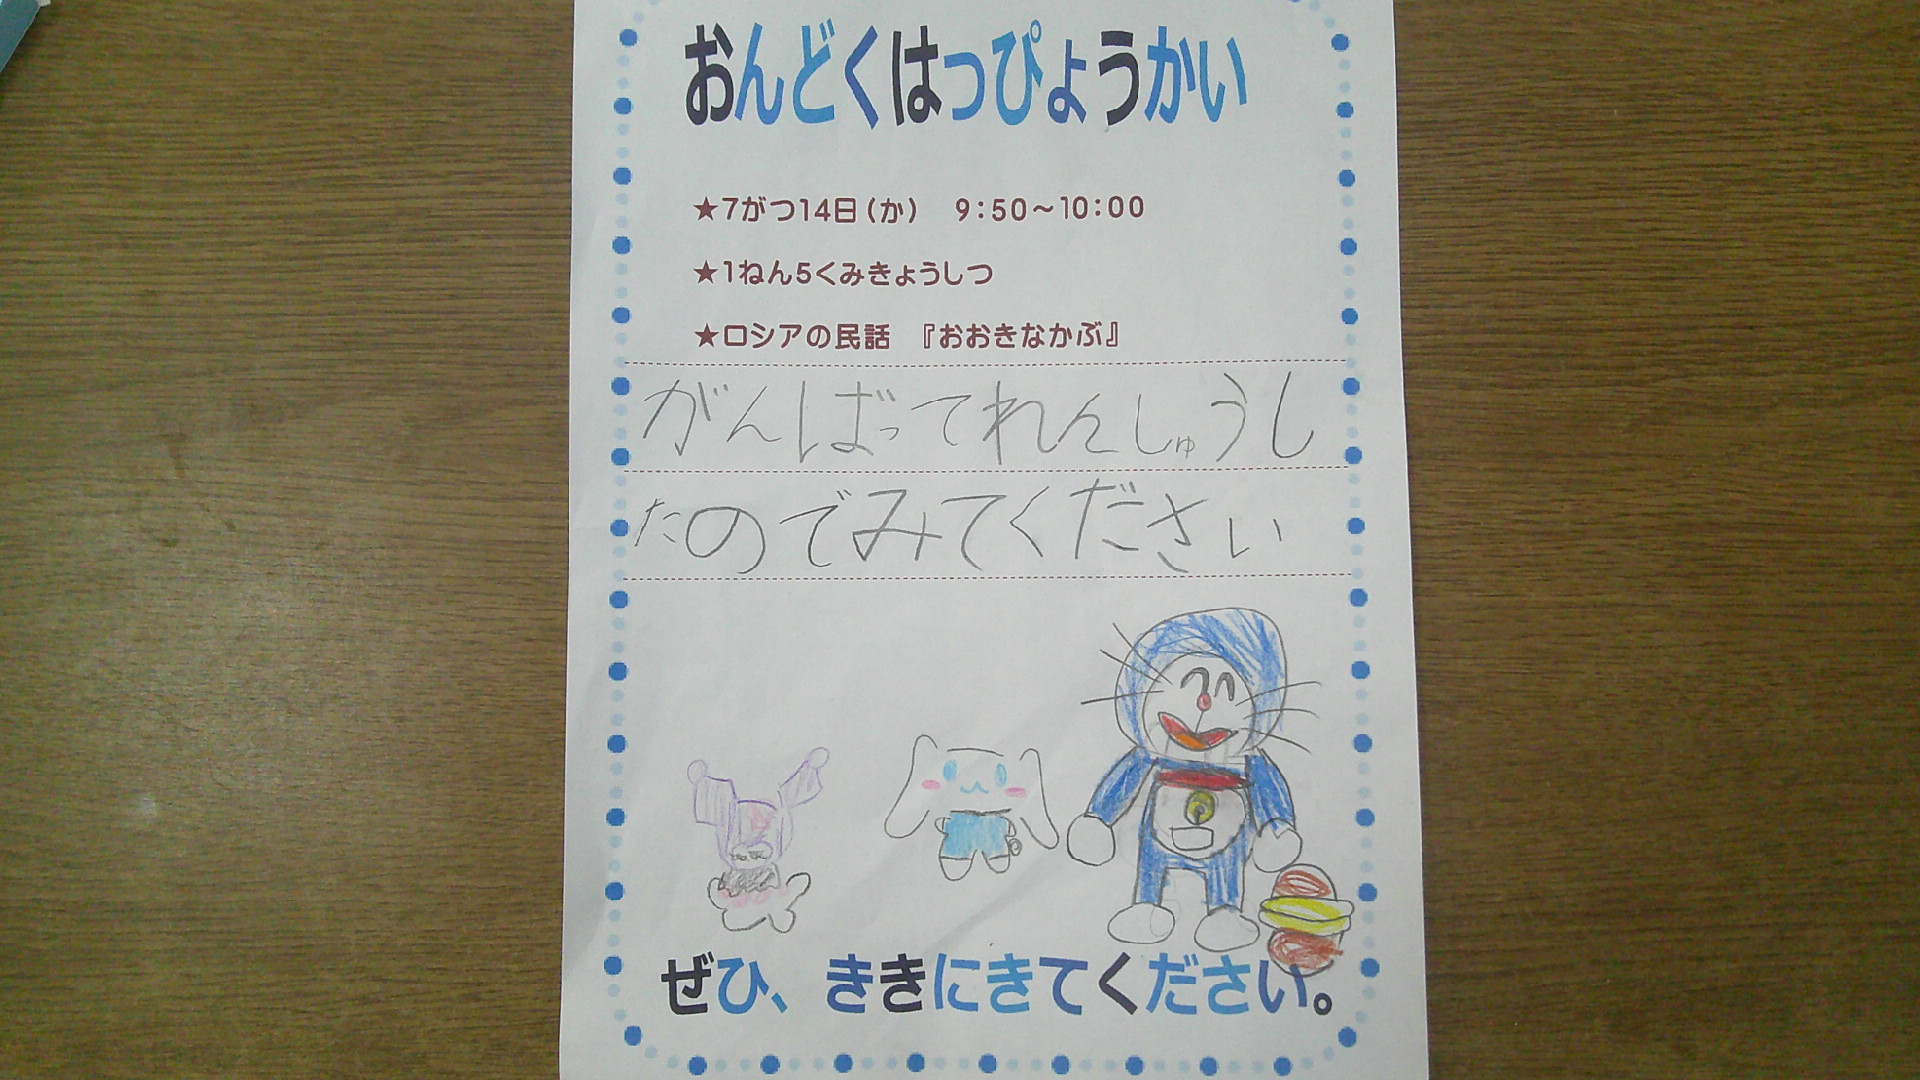 おんどくはっぴょうかい
★7がつ14日(か) 9:50～10:00
★1ねん5くみきょうしつ
★ロシアの民話 『おおきなかぶ』
がんばってれんしゅうし
たのでみてください
ぜひ、ききにきてください。